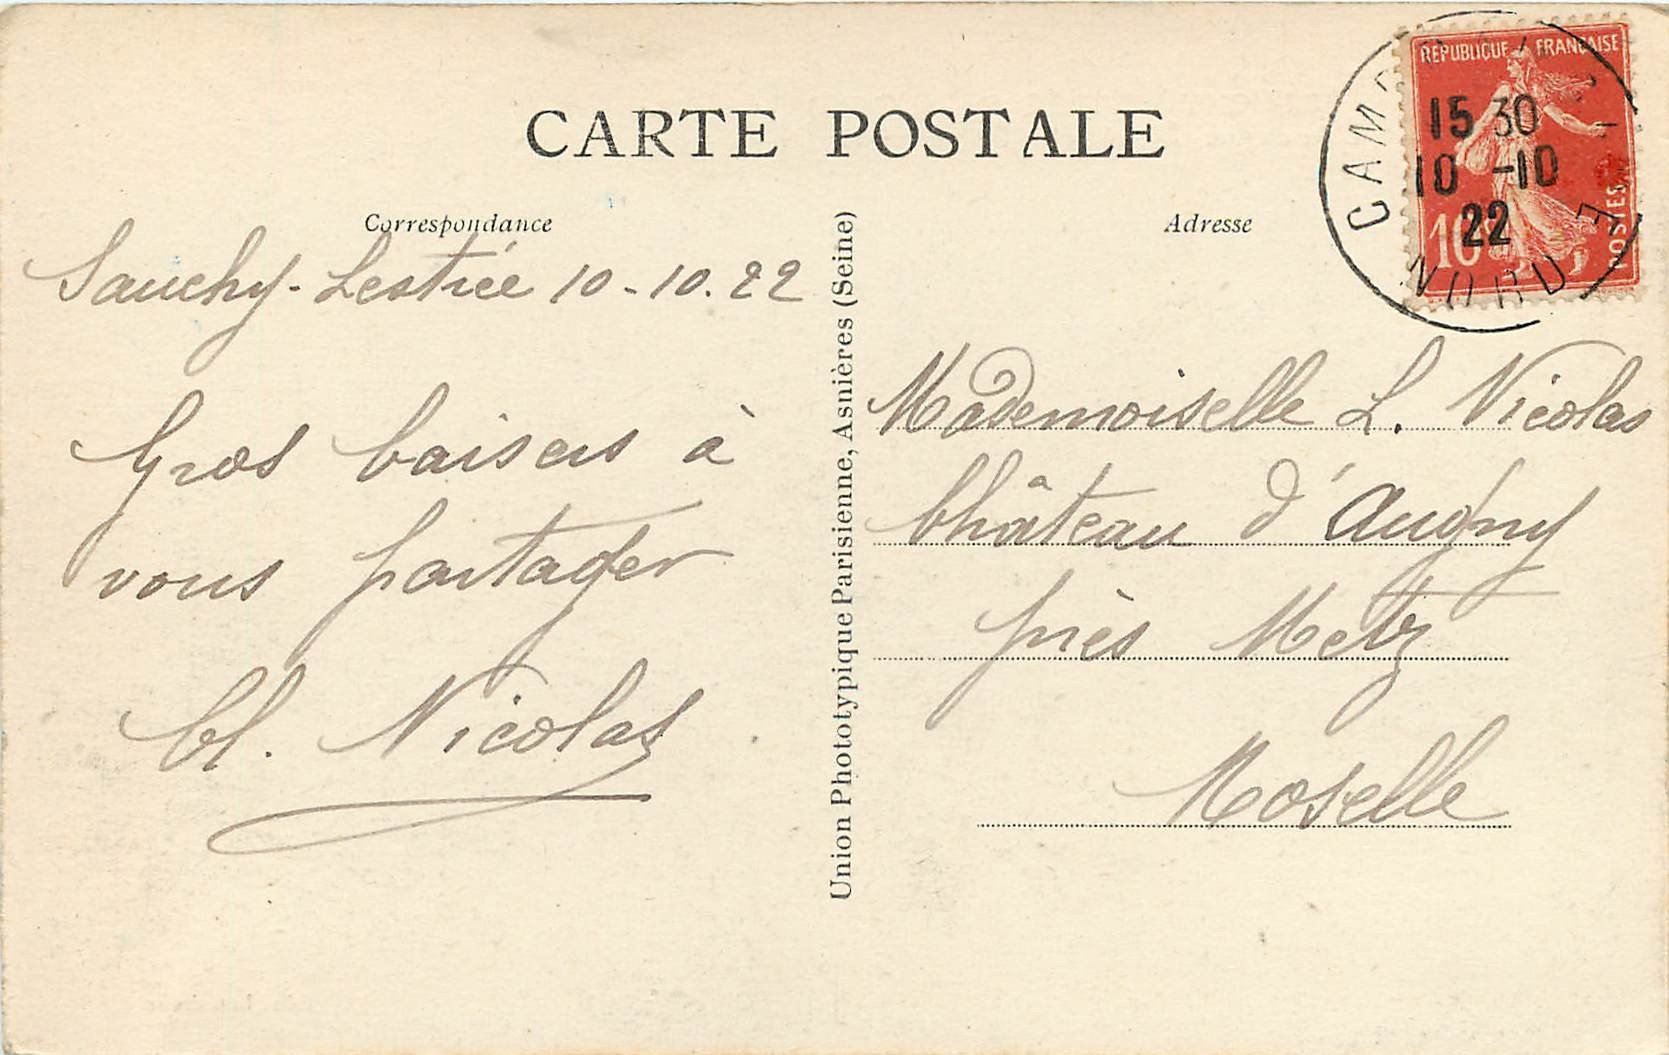 CARTE POSTALE
Correspondance
Sauchy-Lestrée 10-10.22
Gros baisers à
vous partager
Cl. Nicolas
Union Phototypique Parisienne, Asnières (Seine)
Adresse
REPUBLIQUE FRANÇAISE
POSTES
10c
CAM
15 30
10 -10
22
NORD
Mademoiselle L. Nicolas
Château d'Augny
près Metz
Moselle